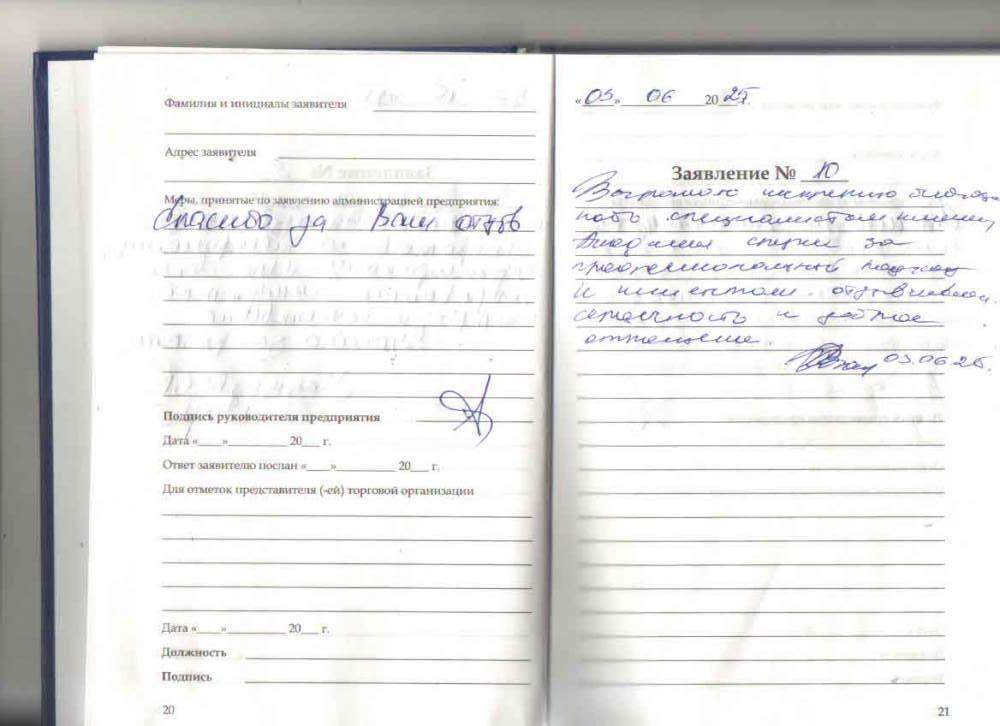 Фамилия и инициалы заявителя
Адрес заявителя
Меры, принятые по заявлению администрацией предприятия:
Спасибо за Ваш отзыв
Подпись руководителя предприятия
Дата «___»_________ 20___ г.
Ответ заявителю послан «___»_________ 20___ г.
Для отметок представителя (-ей) торговой организации
Дата «___»_________ 20___ г.
Должность
Подпись
20
«03» 06 2025г.
Заявление № 10
Выражаю искреннюю благода
ность специалистам
за
профессиональный подход
и отзывчивость.
и доброе
отношение.
03.06.25.
21